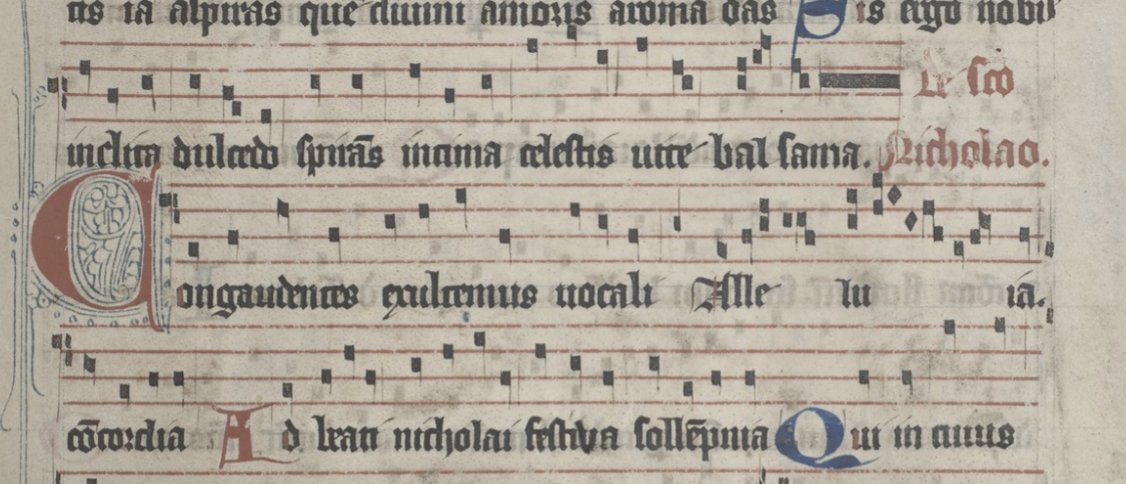 tis ia aspiras que diuini amoris aroma das Sis ergo nobil
inclita dulcedo spirās intima celestis uite balsama. De sco Nicholao.
Congaudentes exultemus uocali Alle lu ia.
cōcordia Ad beati nicholai festiva sollēpnia Qui in cunis